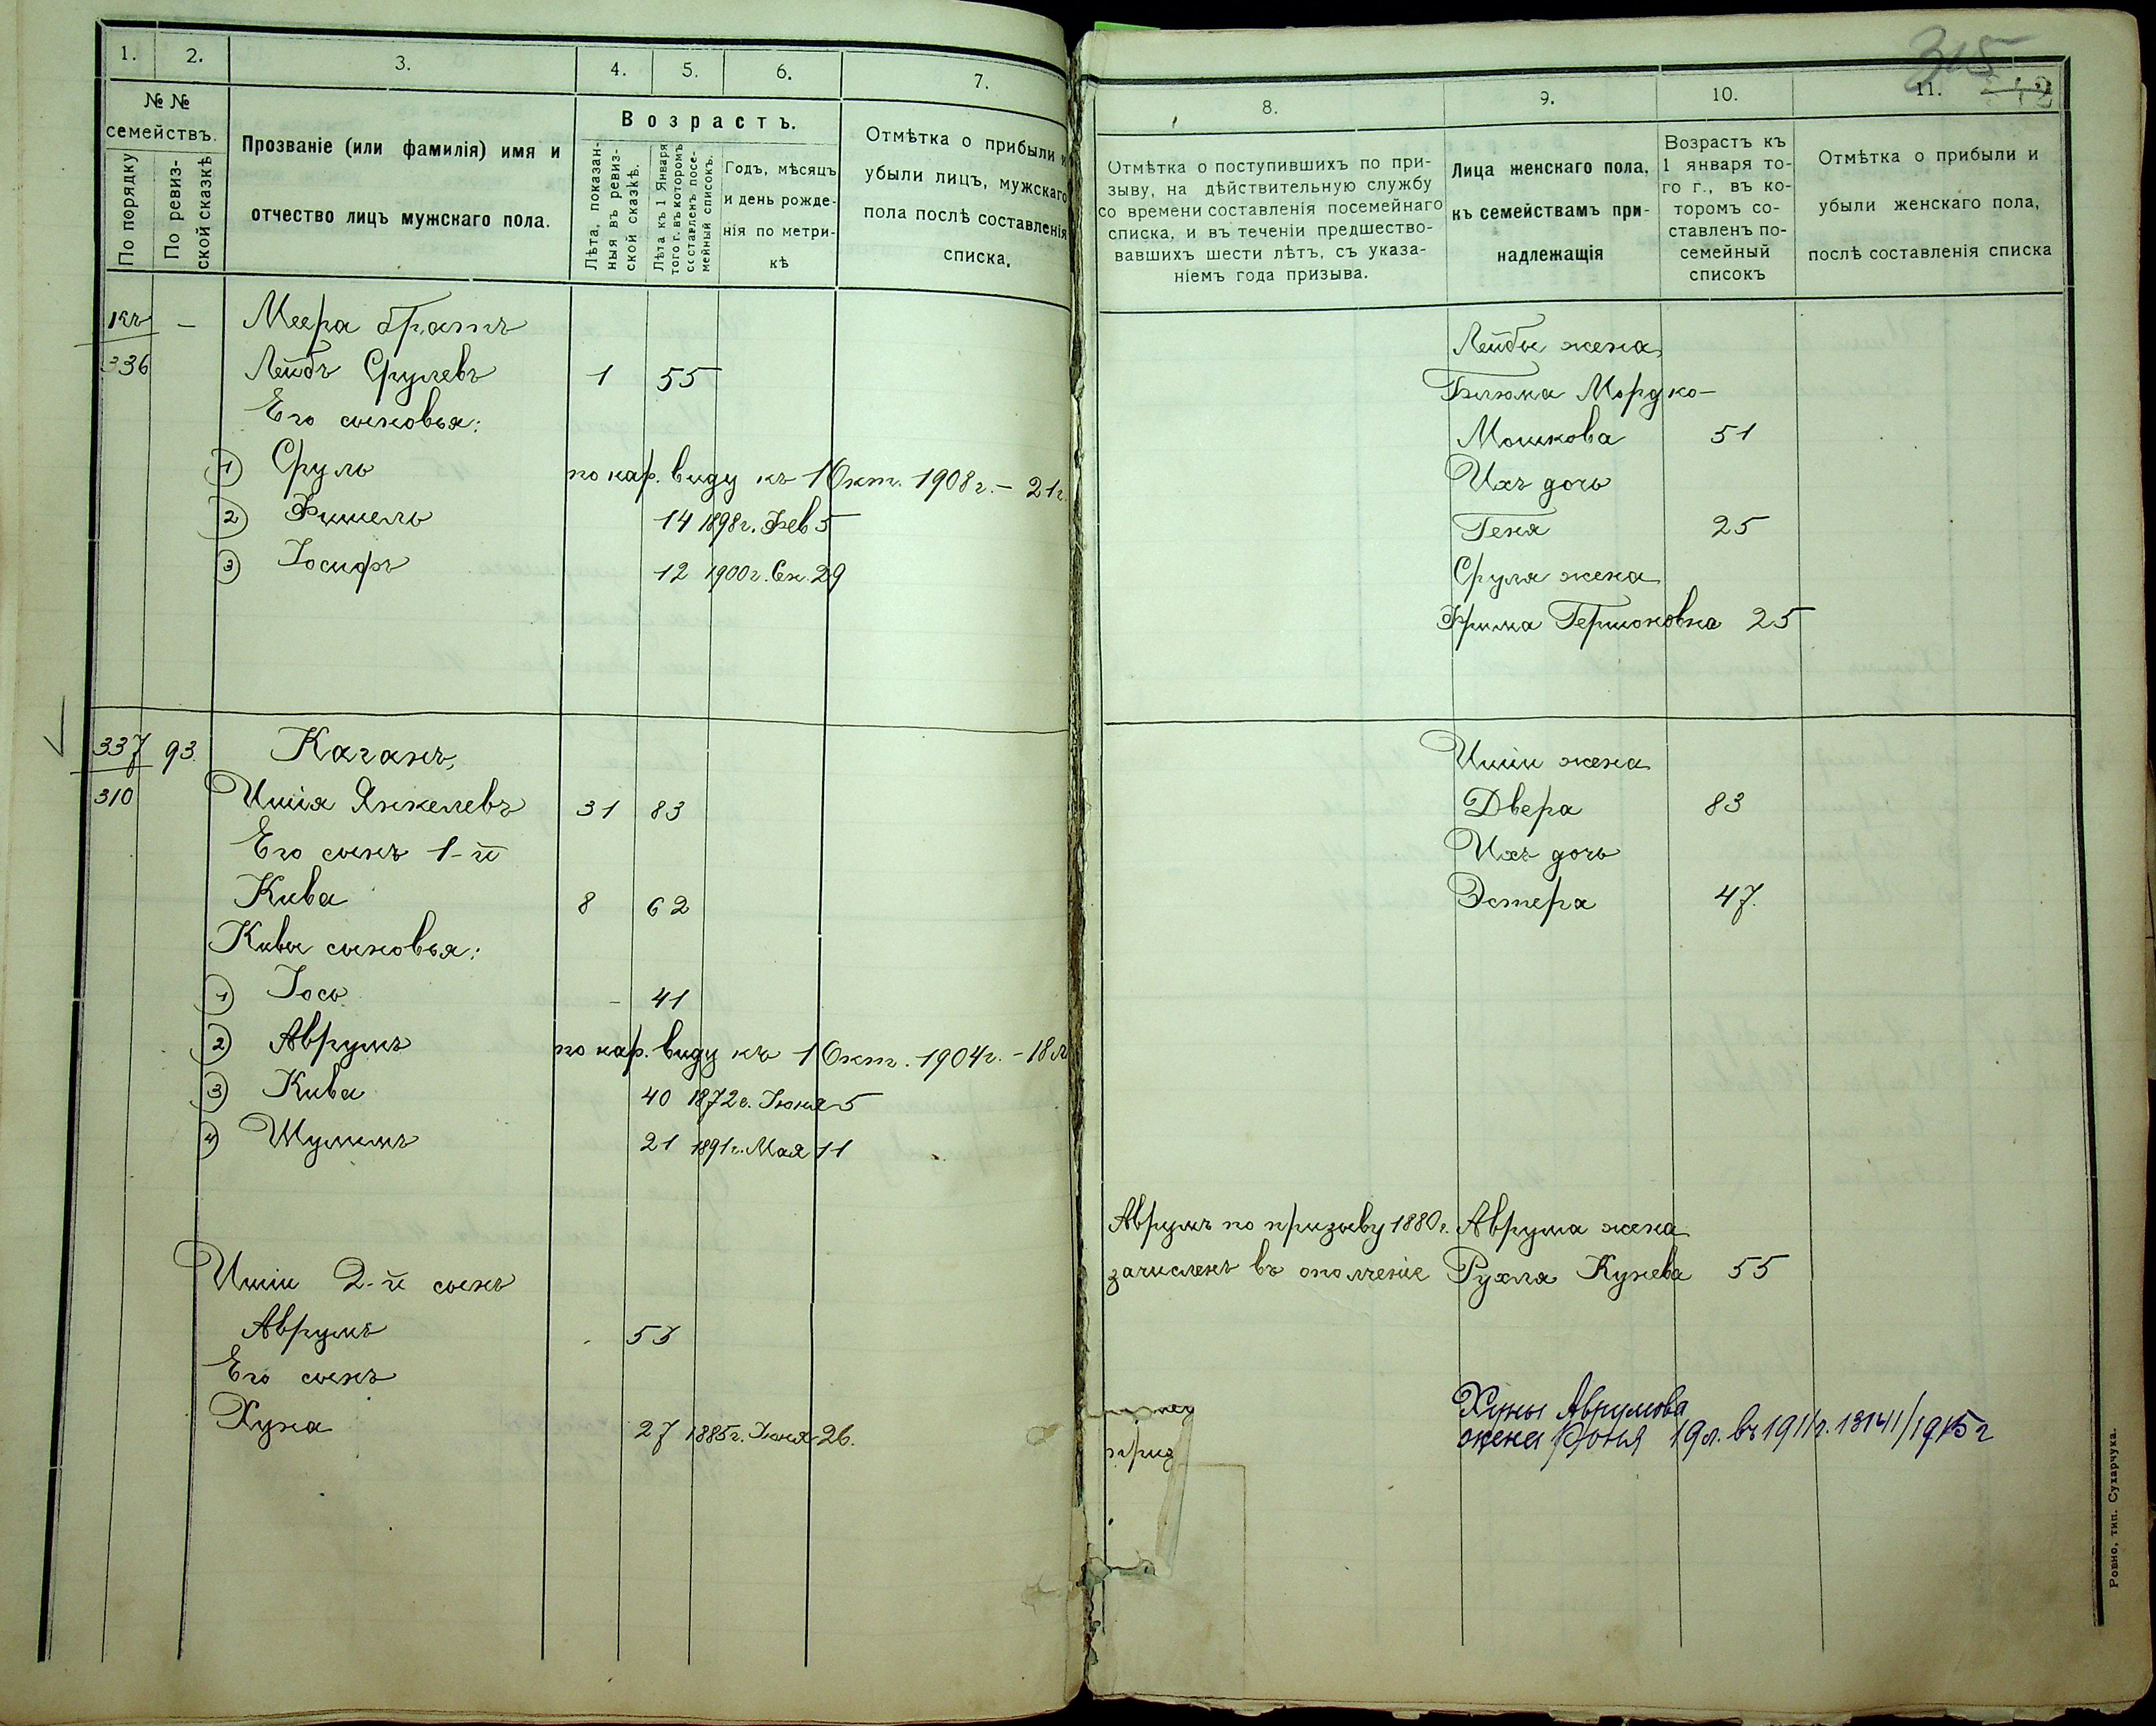 1. 2. 3. 4. 5. 6. 7.
№ №
семействъ.
По порядку
По ревиз-
ской сказкѣ
Прозваніе (или фамилія) имя и
отчество лицъ мужскаго пола.
Возрастъ.
Лѣта, показан-
ныя въ ревиз-
ской сказкѣ.
Лѣта къ 1 Января
того г. въ которомъ
составленъ посе-
мейный списокъ.
Годъ, мѣсяцъ
и день рожде-
нія по метри-
кѣ
Отмѣтка о прибыли и
убыли лицъ, мужскаго
пола послѣ составленія
списка.
Къ — Меера братъ
336 Лейбъ Срулевъ 1 55
Его сыновья:
1) Сруль по нар. виду къ 1 Окт. 1908 г. – 21 г.
2) Фишель 14 1898 г. Фев 5
3) Іосифъ 12 1900 г. Сен. 29
337 93. Каганъ,
310 Ишія Янкелевъ 31 83
Его сынъ 1-й
Кива 8 62
Кивы сыновья:
1) Іось - 41
2) Аврумъ по нар. виду къ 1 Окт. 1904 г. – 18 л
3) Кива 40 1872 г. Іюня 5
4) Шулимъ 21 1891 г. Мая 11
Ишіи 2-й сынъ
Аврумъ 53
Его сынъ
Хуна 27 1885 г. Іюня 26.
315
12
8. 9. 10. 11.
Отмѣтка о поступившихъ по при-
зыву, на дѣйствительную службу
со времени составленія посемейнаго
списка, и въ теченіи предшество-
вавшихъ шести лѣтъ, съ указа-
ніемъ года призыва.
Лица женскаго пола,
къ семействамъ при-
надлежащія
Возрастъ къ
1 января то-
го г., въ ко-
торомъ со-
ставленъ по-
семейный
списокъ
Отмѣтка о прибыли и
убыли женскаго пола,
послѣ составленія списка
Лейбы жена
Блюма Мордко-
Мошкова 51
Ихъ дочь
Геня 25
Сруля жена
Фрима Гершоновна 25
Ишіи жена
Двера 83
Ихъ дочь
Эстера 47.
Аврумъ по призыву 1880 г. Аврума жена
зачисленъ въ ополченіе Рухля Кунева 55
Хуны Аврумова
приз жена Роня 19 л. въ 1911 г. 13141/1915 г
Ровно, тип. Сухарчука.